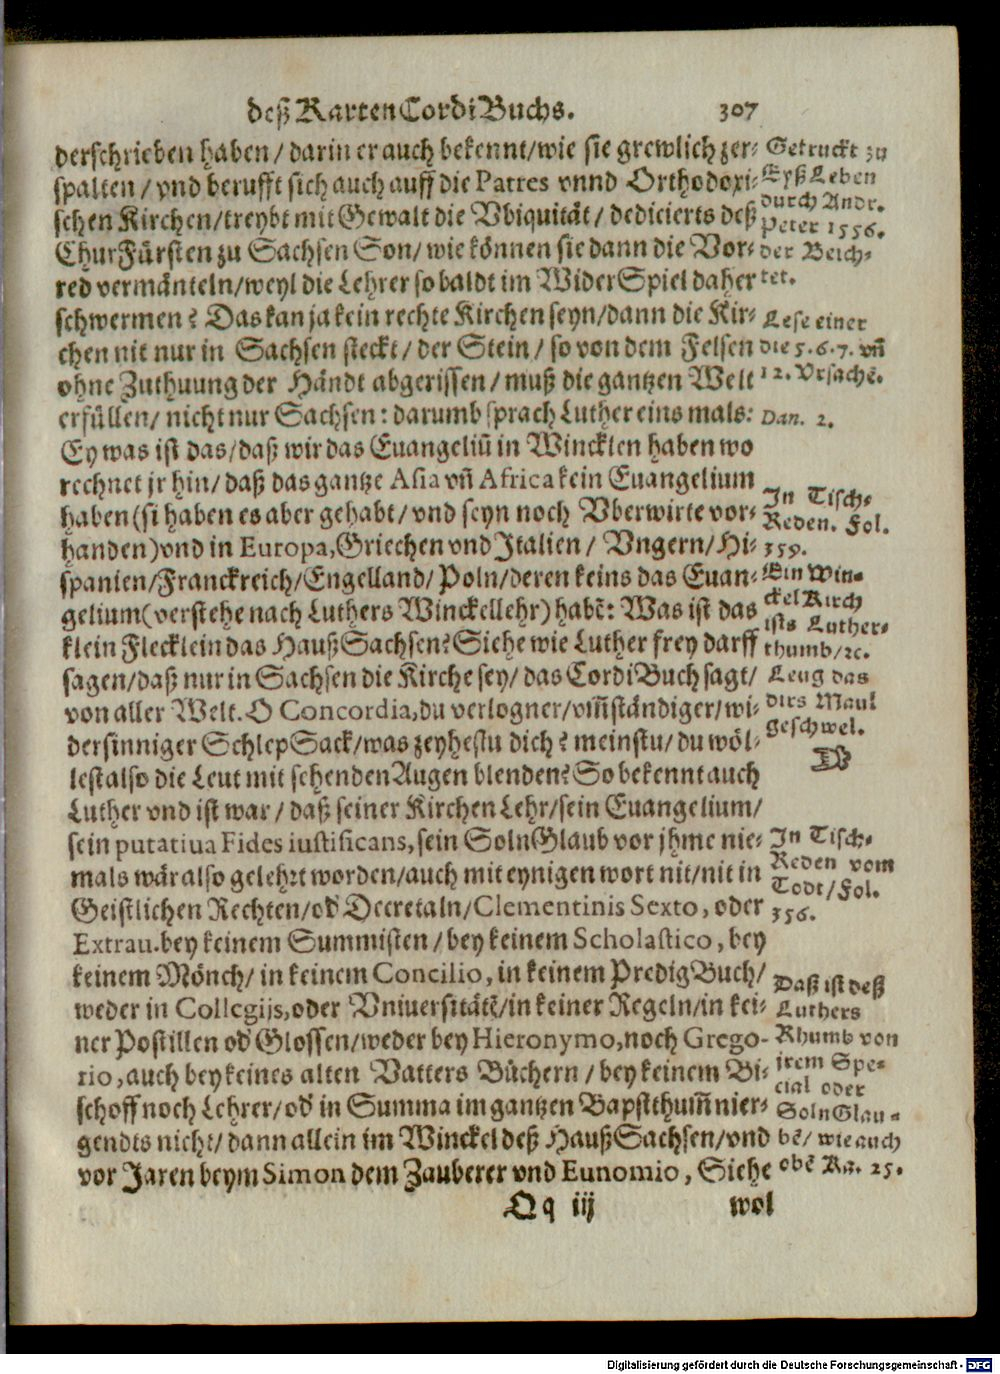 deß KartenCordiBuchs. 307
derschrieben haben/ darin er auch bekennt/wie sie grewlich zer-
spalten/ vnd berufft sich auch auff die Patres vnnd Orthodoxi-
schen Kirchen/treybt mit Gewalt die Vbiquität/ dedicierts deß
ChurFürsten zu Sachsen Son/ wie können sie dann die Vor-
red vermänteln/weyl die Lehrer so baldt im WiderSpiel daher
schwermen? Das kan ja kein rechte Kirchen seyn/dann die Kir-
chen nit nur in Sachsen steckt/ der Stein/ so von dem Felsen
ohne Zuthuung der Händt abgerissen/ muß die gantzen Welt
erfüllen/ nicht nur Sachsen: darumb sprach Luther eins mals:
Ey was ist das/daß wir das Euangeliū in Wincklen haben wo
rechnet jr hin/ daß das gantze Asia vñ Africa kein Euangelium
haben (si haben es aber gehabt/ vnd seyn noch Vberwirte vor-
handen) vnd in Europa, Griechen vnd Italien/ Vngern/Hi-
spanien/Franckreich/Engelland/ Poln/deren keins das Euan-
gelium (verstehe nach Luthers Winckellehr) habē: Was ist das
klein Flecklein das HaußSachsen? Siehe wie Luther frey darff
sagen/daß nur in Sachsen die Kirche sey/ das CordiBuch sagt/
von aller Welt. O Concordia, du verlogner/vm̄ständiger/wi-
dersinniger SchlepSack/was zeyhestu dich? meinstu/ du wöl-
lest also die Leut mit sehenden Augen blenden? So bekennt auch
Luther vnd ist war/ daß seiner Kirchen Lehr/sein Euangelium/
sein putatiua Fides iustificans, sein SolnGlaub vor jhme nie-
mals wär also gelehrt worden/auch mit eynigen wort nit/nit in
Geistlichen Rechten/oď Decretaln/Clementinis Sexto, oder
Extrau. bey keinem Summisten/ bey keinem Scholastico, bey
keinem Mönch/ in keinem Concilio, in keinem PredigBuch/
weder in Collegijs, oder Vniuersitätē/in keiner Regeln/in kei-
ner Postillen oď Glossen/weder bey Hieronymo, noch Grego-
rio, auch bey keines alten Vatters Büchern/ bey keinem Bi-
schoff noch Lehrer/ oď in Summa im gantzen Bapstthum̄ nier-
gendts nicht/ dann allein im Winckel deß HaußSachsen/vnd
vor Jaren beym Simon dem Zauberer vnd Eunomio, Siehe
Qq iij wol
Getruckt zu
Eyßleben
durch Andr.
Peter 1556.
der Beich-
tet.
Lese einer
die 5. 6. 7. vñ
12. Vrsachē.
Dan. 2.
In Tisch-
Reden. Fol.
359.
Ein Win-
ckelKirch
ists Luther-
thumb/ ꝛc.
Leug das
dirs Maul
geschwel.
In Tisch-
Reden vom
Todt/Fol.
356.
Daß ist deß
Luthers
Rhumb von
jrem Spe-
cial oder
SolnGlau-
bē/ wie auch
obē Ka. 25.
Digitalisierung gefördert durch die Deutsche Forschungsgemeinschaft - DFG